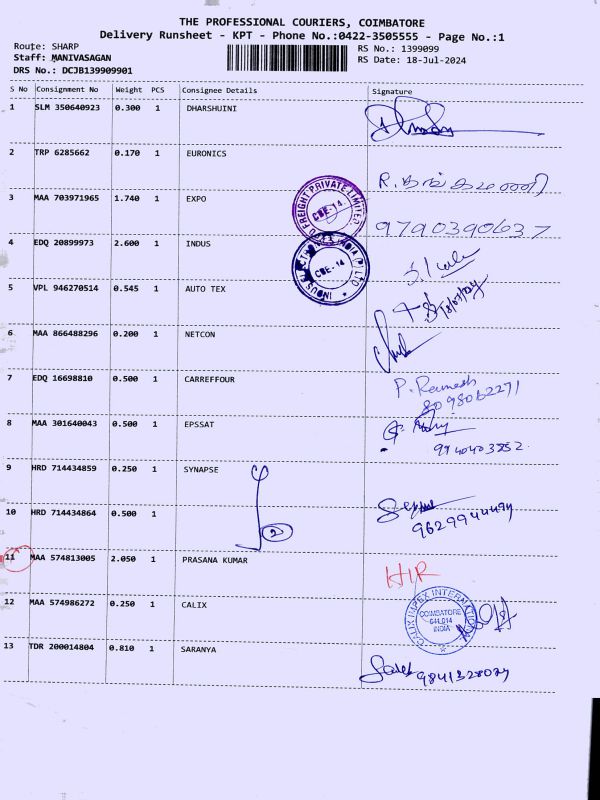 THE PROFESSIONAL COURIERS, COIMBATORE
Delivery Runsheet - KPT - Phone No.:0422-3505555 - Page No.:1
Route: SHARP
RS No.: 1399099
Staff: MANIVASAGAN
RS Date: 18-Jul-2024
DRS No.: DCJB139909901
S No Consignment No Weight PCS Consignee Details Signature
1 SLM 350640923 0.300 1 DHARSHUINI
2 TRP 6285662 0.170 1 EURONICS
3 MAA 703971965 1.740 1 EXPO
FREIGHT PRIVATE LIMITED
CBE-14
9790390637
4 EDQ 20899973 2.600 1 INDUS
INDUS ELECTRONICS INDIA (P) LTD
CBE-14
5 VPL 946270514 0.545 1 AUTO TEX
6 MAA 866488296 0.200 1 NETCON
7 EDQ 16698810 0.500 1 CARREFFOUR
P. Ramesh
8098062271
8 MAA 301640043 0.500 1 EPSSAT
9940403852
9 HRD 714434859 0.250 1 SYNAPSE
2
10 HRD 714434864 0.500 1
9629944494
11 MAA 574813005 2.050 1 PRASANA KUMAR
H/R
12 MAA 574986272 0.250 1 CALIX
CALIX IMPEX INTERNATIONAL
COIMBATORE
641 014
INDIA
13 TDR 200014804 0.810 1 SARANYA
9841328029